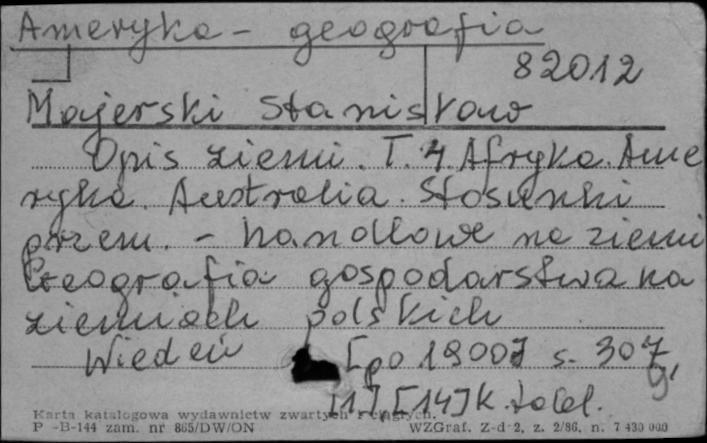 Ameryka - geografia
82012
Majerski Stanisław
Opis ziemi. T. 4. Afryka. Ame
ryka. Australia. Stosunki
przem. - handlowe na ziemi
Geografia gospodarstwa na
ziemiach polskich
Wiedeń [po 1900] s. 307,
[1] [14] k. tabl.
Karta katalogowa wydawnictw zwartych i ciągłych.
P -B-144 zam. nr 865/DW/ON WZGraf. Z-d 2, z. 2/86, n. 7 430 000